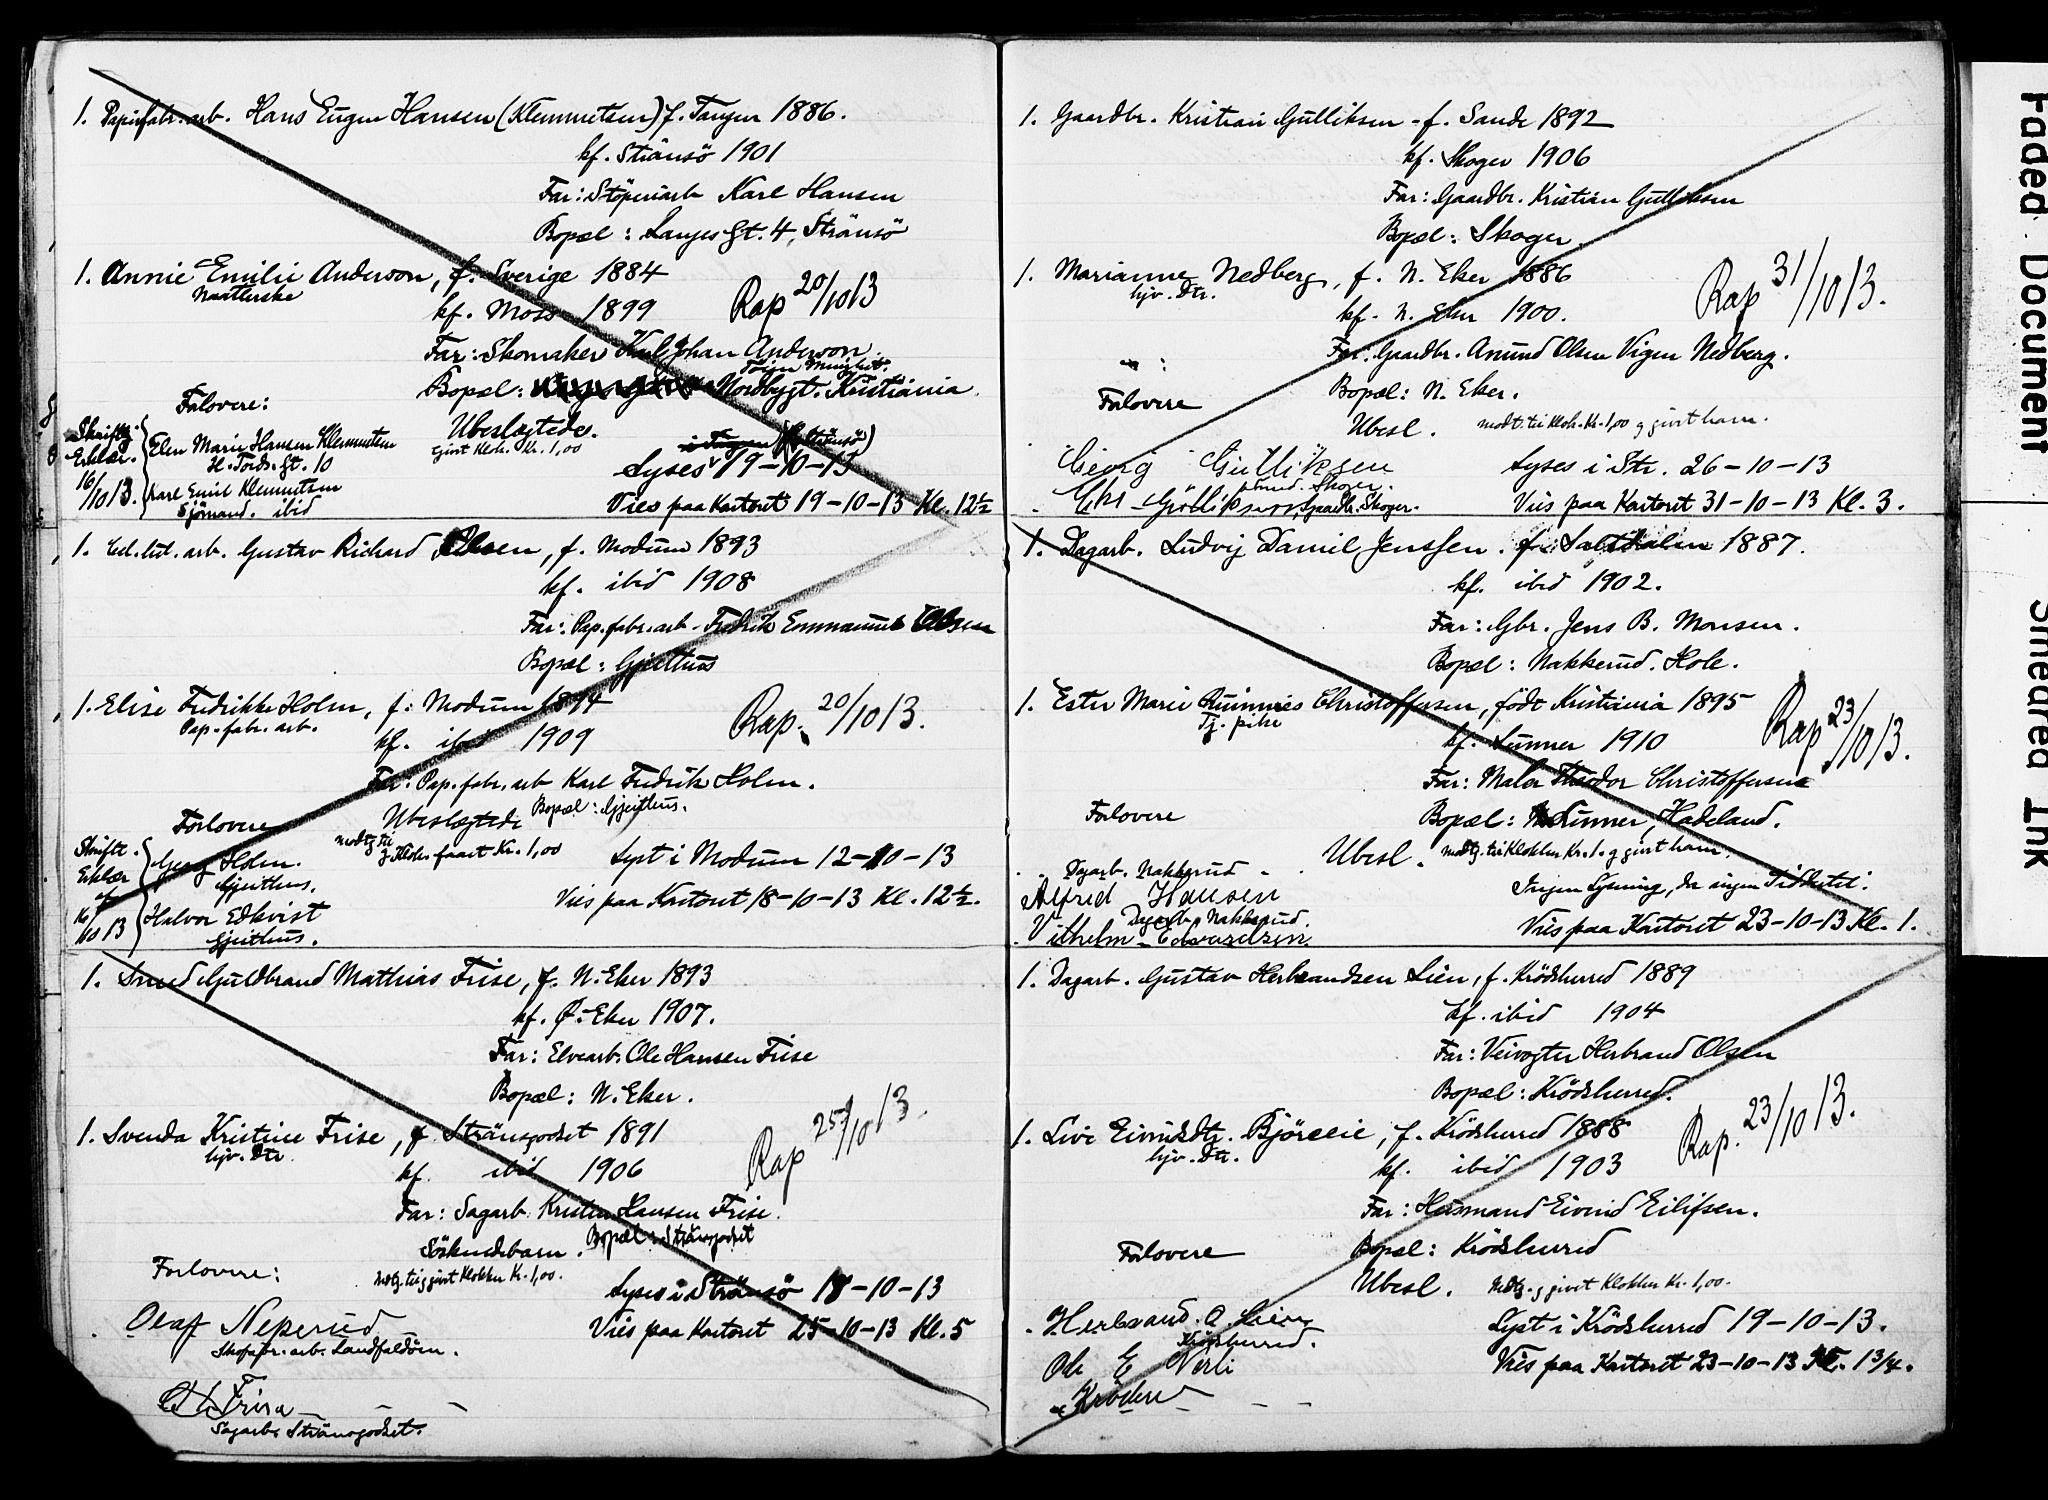 1. Papirfabr. arb. Hans Eugen Hansen (Klemmetsen) f. Tangen 1886.
kf. Strömsö 1901
Far: Stöperiarb Karl Hansen
Bopæl: Langes gt. 4, Strömsö
1. Annie Emilie Anderson, f. Sverige 1884
kf. Moss 1899
Rap 20/10 13
Far: Skomaker Karl Johan Anderson
Bopæl: Nordbygt. Kristiania
Forlovere:
Ubeslægtede.
givet Klok. Kr. 1,00
Skriftl. Erklær. 16/10 13.
Elen Marie Hansen Klemmetsen
H. Tords. gt. 10
Karl Emil Klemmetsen
Sjömand. ibid
Lyses 19-10-13
Vies paa Kontoret 19-10-13 Kl. 12½
1. Cel. lul. arb. Gustav Richard Olsen, f. Modum 1893
kf. ibid 1908
Far: Pap. fabr. arb. Fredrik Emmanuel Olsen
Bopæl: Gjeithus
1. Elise Fredrikke Holm, f. Modum 1894
Pap. fabr. arb.
kf. ibid 1909
Rap. 20/10 13.
Far: Pap. fabr. arb Karl Fredrik Holm.
Bopæl: Gjeithus.
Forlovere
Ubeslægtede
Klok. faaet Kr. 1,00
Skriftl. Erklær
Georg Holm.
Gjeithus.
Halvor Edkvist
Gjeithus.
Lyst i Modum 12-10-13
Vies paa Kontoret 18-10-13 Kl. 12½.
1. Smed Guldbrand Matthias Frise, f. N. Eker 1893
kf. Ø. Eker 1907.
Far: Elvearb. Ole Hansen Frise
Bopæl: N. Eker.
1. Svenda Kristine Frise, f. Strömsgodset 1891
hjv. Dtr.
kf. ibid 1906
Rap 25/10 13.
Far: Sagarb. Kristen Hansen Frise.
Bopæl: Strömsgodset
Söskendebarn.
Forlovere:
Lyses i Strömsö 18-10-13
Olaf Neperud
Skofabr. arb. Landfaldöen.
Vies paa Kontoret 25-10-13 Kl. 5
Sagarb. Strömsgodset.
1. Gaardbr. Kristian Gulliksen - f. Sande 1892
kf. Skoger 1906
Far: Gaardbr. Kristian Gulliksen
Bopæl: Skoger.
1. Marianne Nedberg, f. N. Eker 1886
hjv. Dtr.
kf. N. Eker 1900.
Rap 31/10 13.
Far: Gaardbr. Anund Olsen Vigen Nedberg.
Bopæl: N. Eker.
Forlovere
Ubesl. modt. til Klok. Kr. 1,00 g givet ham.
Georg Gulliksen
Lyses i Str. 26-10-13
Gulliksen, Gaardbr. Skoger.
Vies paa Kontoret 31-10-13 Kl. 3.
1. Dagarb. Ludvig Daniel Jenssen. f. Saltdalen 1887.
kf. ibid 1902.
Far: Gbr. Jens B. Monsen.
Bopæl: Nakkerud. Hole.
1. Ester Marie Christoffersen, födt Kristiania 1895
Tj. pike
kf. Lunner 1910
Rap 23/10 13.
Far: Maler Theodor Christoffersen
Bopæl: Lunner, Hadeland.
Forlovere
Ubesl. modtg. til Klokker Kr. 1. g givet ham.
Dagarb. Nakkerud
Alfred Hansen
Dagarb. Nakkerud
Vilhelm Edvardsen
Ingen Lysning, da ingen Tidsfrist.
Vies paa Kontoret 23-10-13 Kl. 1.
1. Dagarb. Gustav Herbrandsen Lien, f. Krödsherred 1889
kf. ibid 1904
Far: Veivogter Herbrand Olsen
Bopæl: Krödsherred.
1. Live Eivindsdtr. Björeeie, f. Krödsherred 1888
hjv. Dtr.
kf. ibid 1903
Rap. 23/10 13.
Far: Husmand Eivind Eilifsen.
Bopæl: Krödsherred
Forlovere
Ubesl. Modtg. g givet Klokker Kr. 1,00.
Herbrand. O. Lien
Krödsherred.
Lyst i Krödsherred 19-10-13.
Ole E Nerli
Vies paa Kontoret 23-10-13 Kl. 1¾.
Faded Document
Smeared Ink